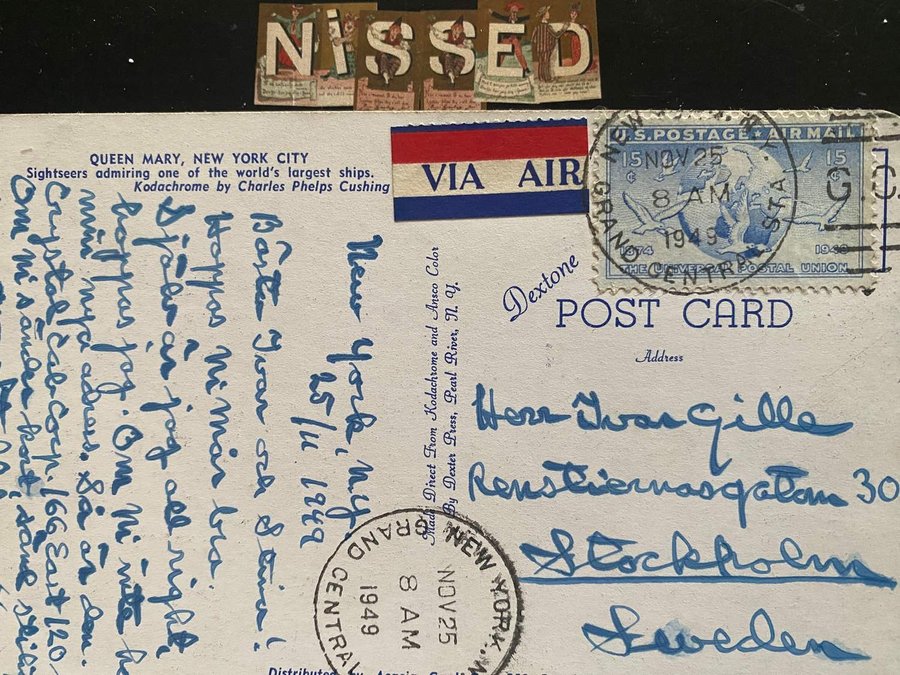 NiSSED
QUEEN MARY, NEW YORK CITY
Sightseers admiring one of the world's largest ships.
Kodachrome by Charles Phelps Cushing
VIA AIR
U.S. POSTAGE AIR MAIL
15¢ 15¢
1874 1949
THE UNIVERSAL POSTAL UNION
NEW YORK, N.Y.
NOV 25
8 AM
1949
GRAND CENTRAL STA.
G. CA
Dextone
POST CARD
Address
Made Direct From Kodachrome and Ansco Color
By Dexter Press, Pearl River, N. Y.
Herr Ivar Gille
Renstiernasgatan 30
Stockholm
Sweden
New York, N.Y.
25/11 1949
Bäste Ivar och Stina!
Hoppas Ni mår bra.
Själv är jag allright,
hoppas jag. Om Ni inte h
min nya adress. Så är den.
Crystal Cab Corp. 166 East 120
Om Ni sänder kort, sänd
NEW YORK, N
NOV 25
8 AM
1949
GRAND CENTRAL
Distributed by